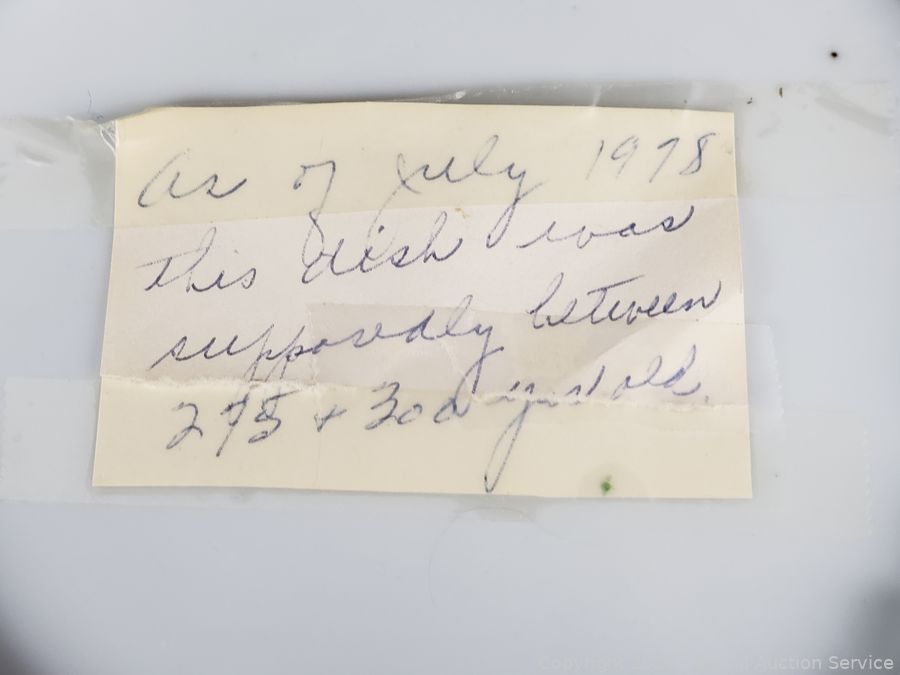 As of July 1978
this dish was
supposedly between
275 + 300 yrs old.
Copyright Auction Service